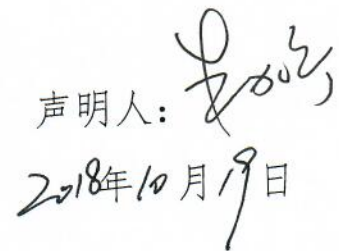 声明人：
2018年10月19日